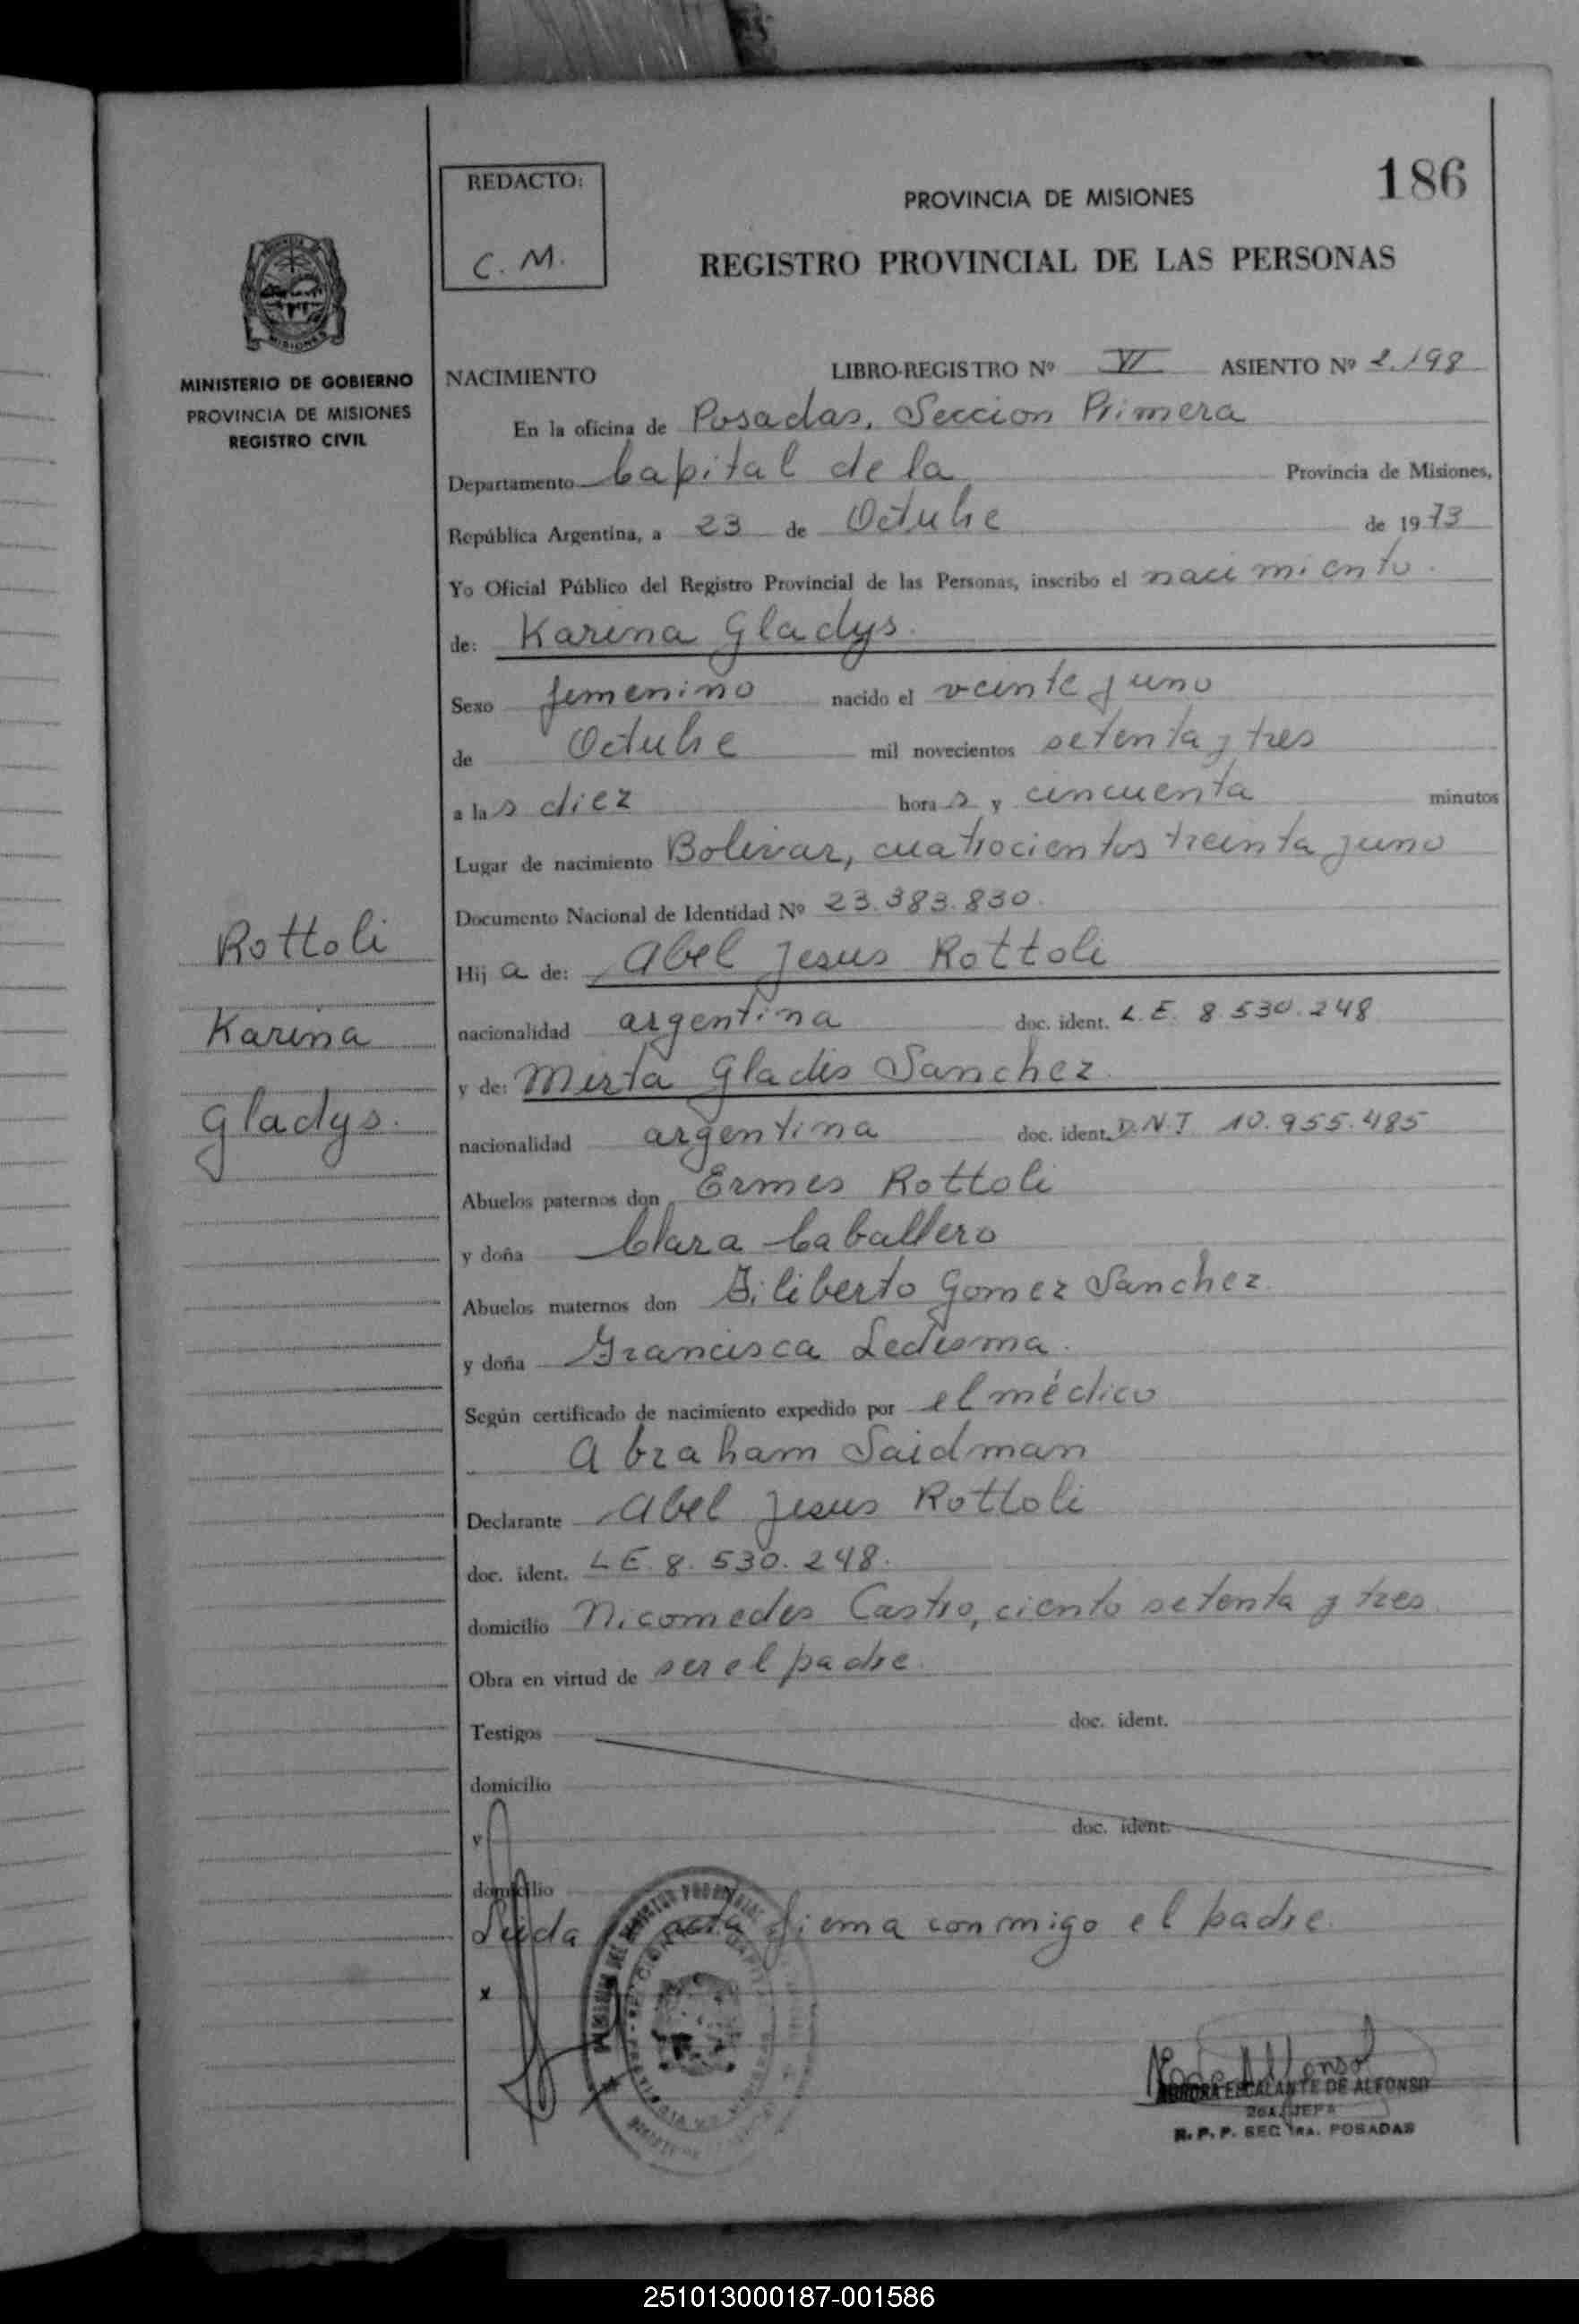 186
REDACTO:
C. M.
PROVINCIA DE MISIONES
REGISTRO PROVINCIAL DE LAS PERSONAS
MISIONES
MINISTERIO DE GOBIERNO
PROVINCIA DE MISIONES
REGISTRO CIVIL
NACIMIENTO LIBRO-REGISTRO Nº VI ASIENTO Nº 2.198
En la oficina de Posadas, Seccion Primera
Departamento Capital de la Provincia de Misiones,
República Argentina, a 23 de Octubre de 1973
Yo Oficial Público del Registro Provincial de las Personas, inscribo el nacimiento.
de: Karina Gladys.
Sexo femenino nacido el veinte y uno
de Octubre mil novecientos setenta y tres
a las diez horas y cincuenta minutos
Lugar de nacimiento Bolivar, cuatrocientos treinta y uno
Documento Nacional de Identidad Nº 23.383.830.
Hija de: Abel Jesus Rottoli
nacionalidad argentina doc. ident. L.E. 8.530.248
y de: Mirta Gladis Sanchez.
nacionalidad argentina doc. ident. D.N.I 10.955.485
Abuelos paternos don Ermes Rottoli
y doña Clara Caballero
Abuelos maternos don Filiberto Gomez Sanchez.
y doña Francisca Ledesma.
Según certificado de nacimiento expedido por el médico
Abraham Saidman
Declarante Abel Jesus Rottoli
doc. ident. L E. 8. 530. 248.
domicilio Nicomedes Castro, ciento setenta y tres
Obra en virtud de ser el padre.
Testigos doc. ident.
domicilio
y doc. ident.
domicilio
Leida acta firma conmigo el padre.
x
Rottoli
Karina
Gladys.
AURORA ESCALANTE DE ALFONSO
2da. JEFA
R. P. P. SEC 1RA. POSADAS
251013000187-001586